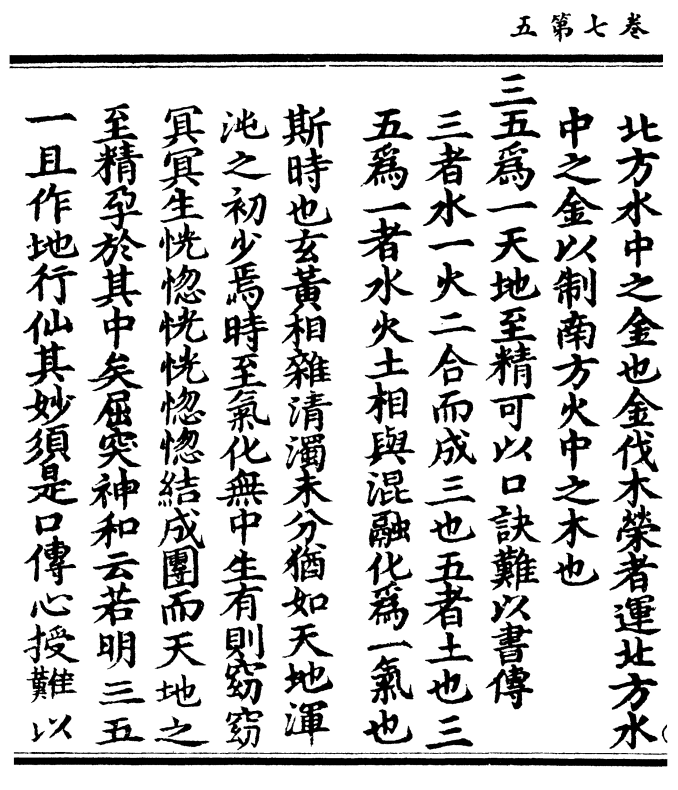 卷七第五
北方水中之金也金伐木榮者運北方水
中之金以制南方火中之木也
三五爲一天地至精可以口訣難以書傳
三者水一火二合而成三也五者土也三
五爲一者水火土相與混融化爲一氣也
斯時也玄黃相雜清濁未分猶如天地渾
沌之初少焉時至氣化無中生有則窈窈
冥冥生恍惚恍恍惚惚結成團而天地之
至精孕於其中矣屈突神和云若明三五
一且作地行仙其妙須是口傳心授難以